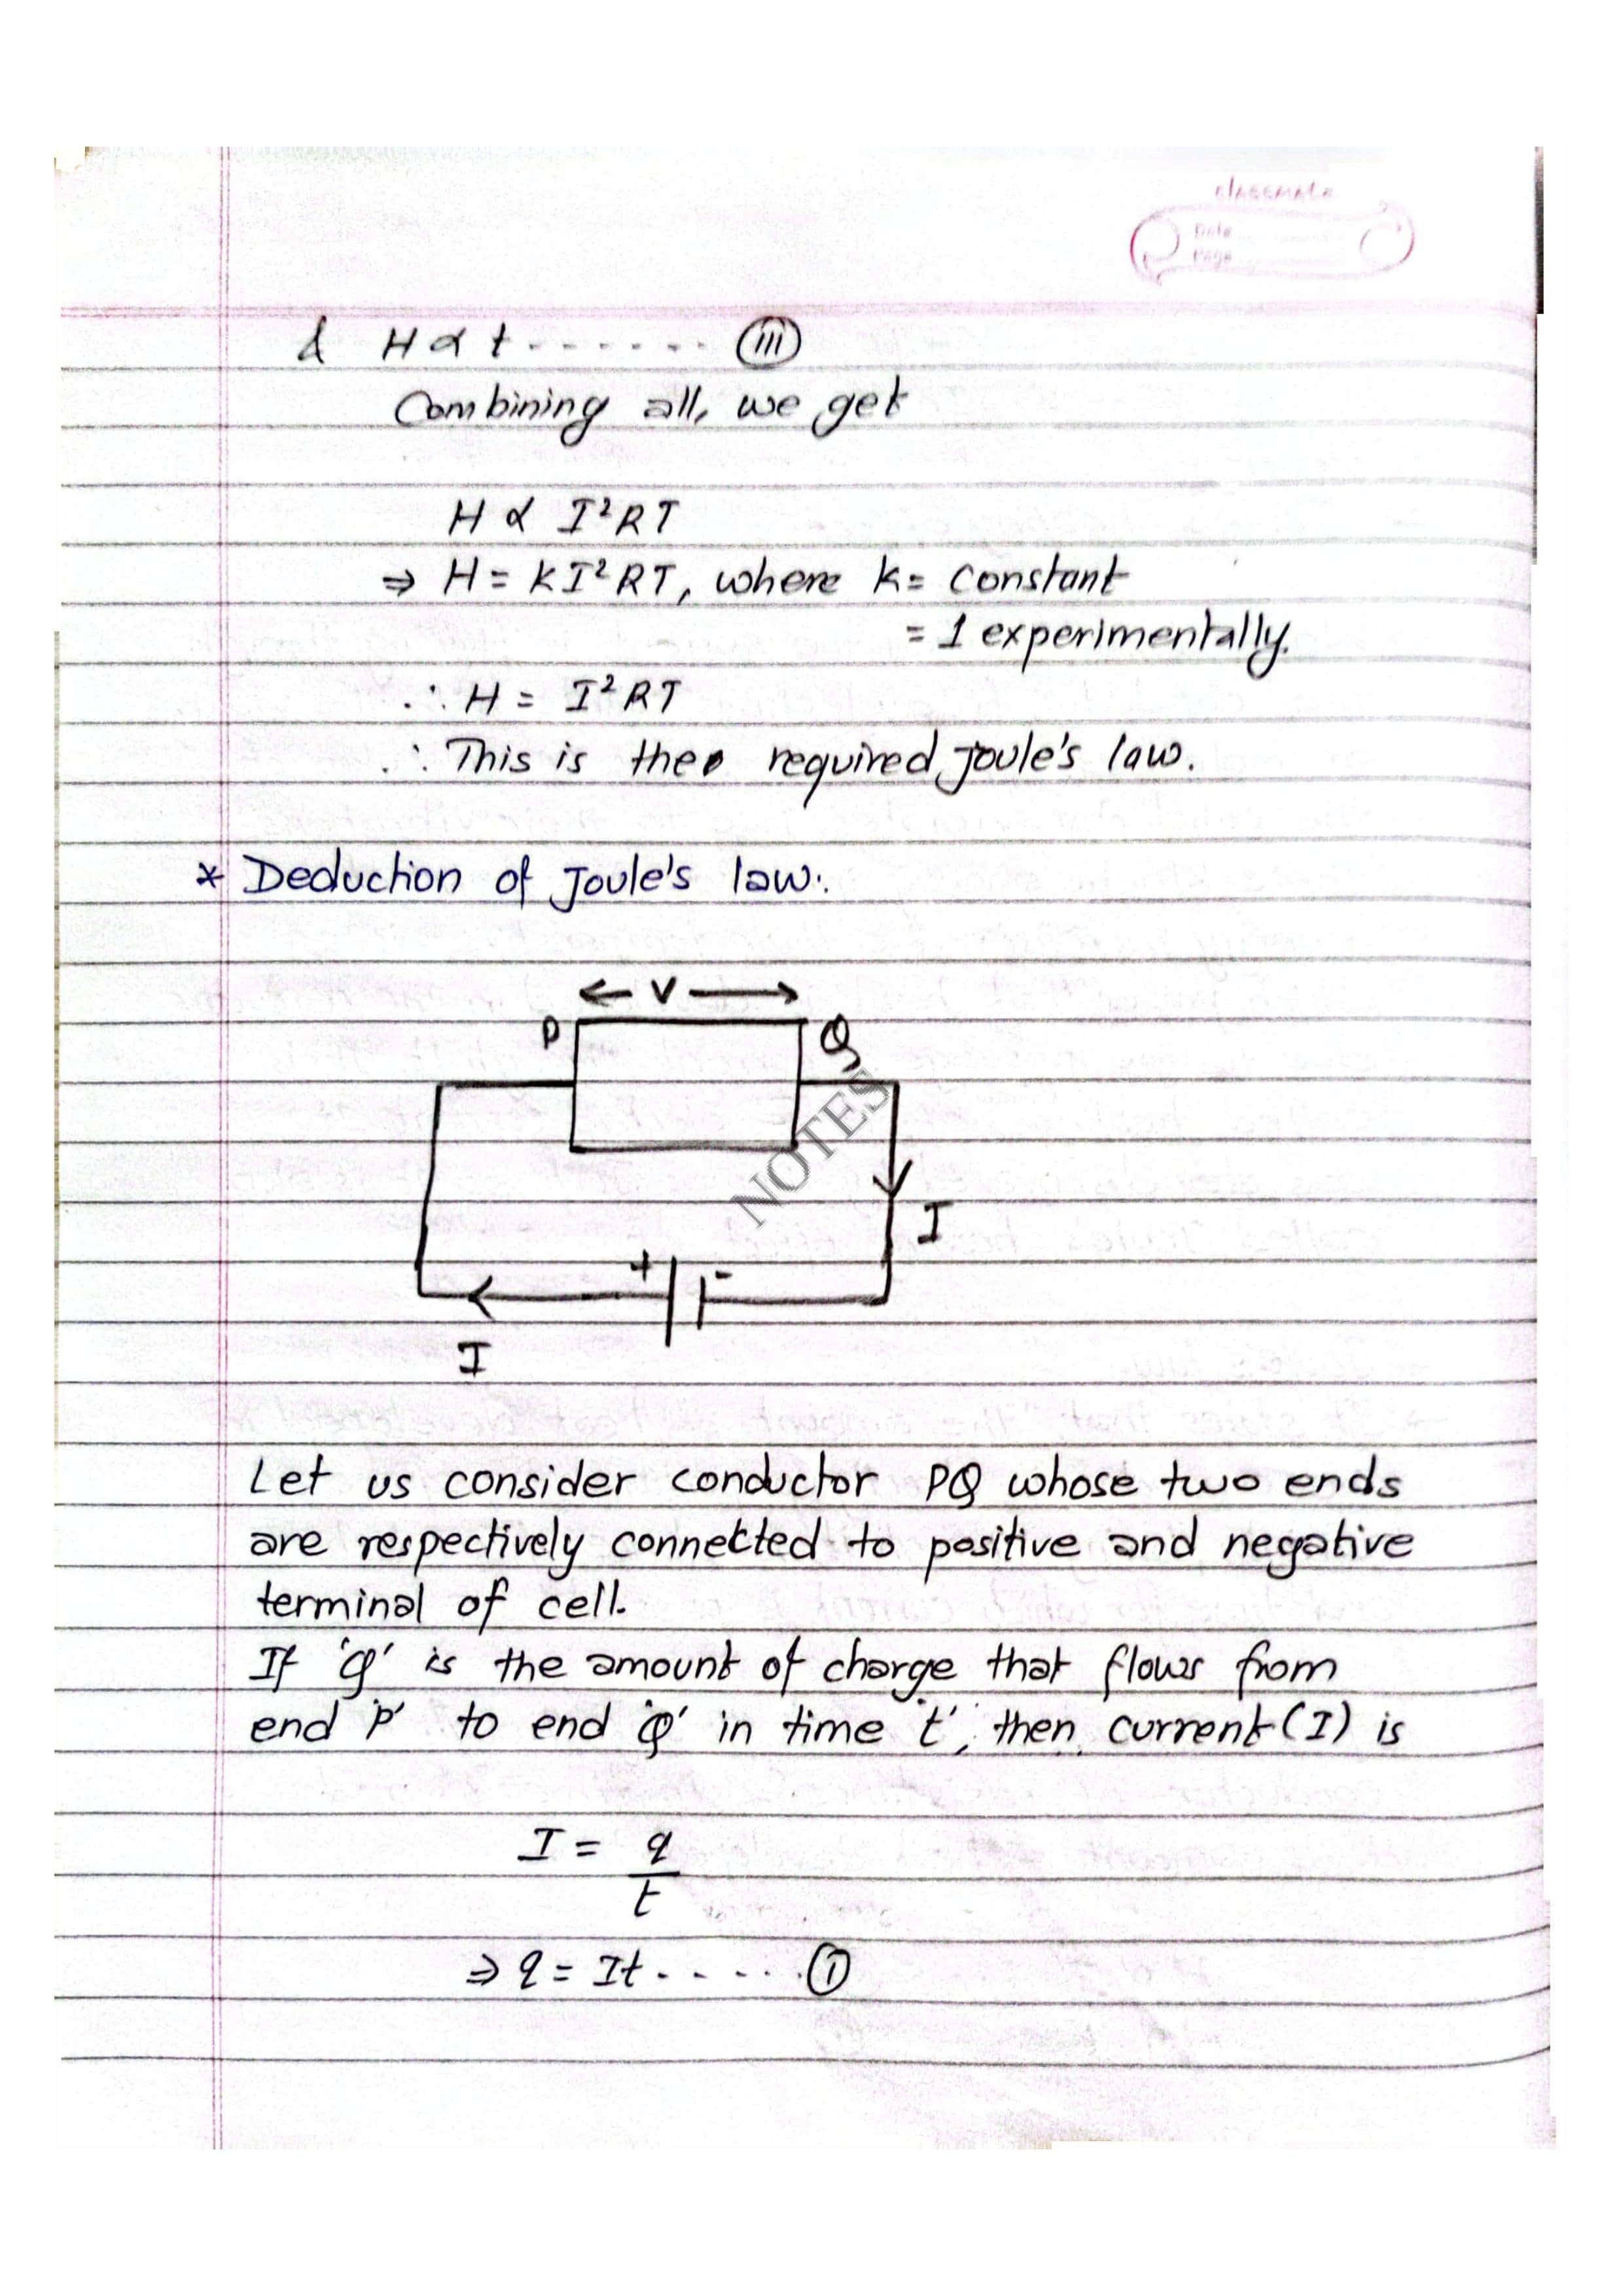 classmate
Date
Page
& H ∝ t ....... (iii)
Combining all, we get
H ∝ I²RT
⇒ H = KI²RT, where k = constant
= 1 experimentally.
∴ H = I²RT
∴ This is the required Joule's law.
* Deduction of Joule's law:
← V →
P Q
NOTES
I
+ -
I
Let us consider conductor PQ whose two ends
are respectively connected to positive and negative
terminal of cell.
If 'q' is the amount of charge that flows from
end 'P' to end 'Q' in time 't', then current (I) is
I = q
t
⇒ q = It ...... (i)